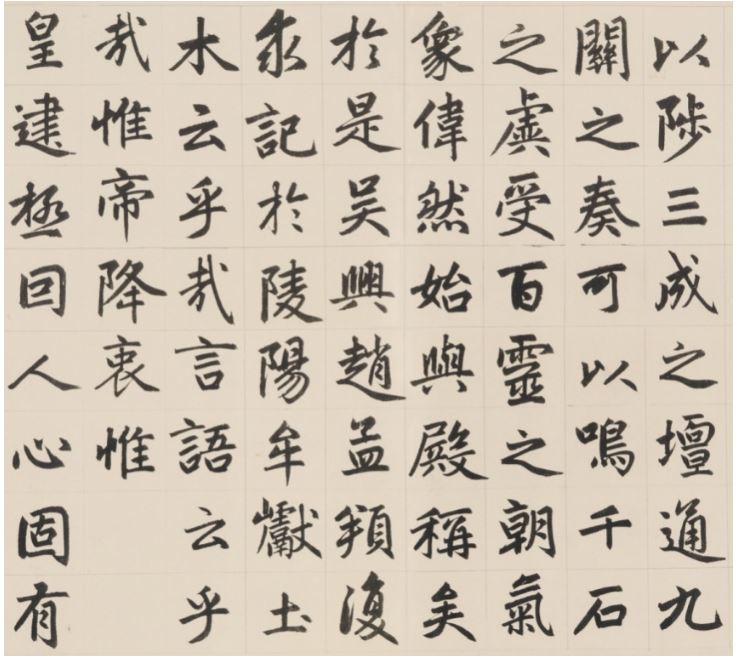 以陟三成之壇通九
關之奏可以鳴千石
之虡受百靈之朝氣
象偉然始與殿稱矣
於是吳興趙孟頫復
求記於陵陽牟巘土
木云乎哉言語云乎
哉惟帝降衷惟
皇建極因人心固有